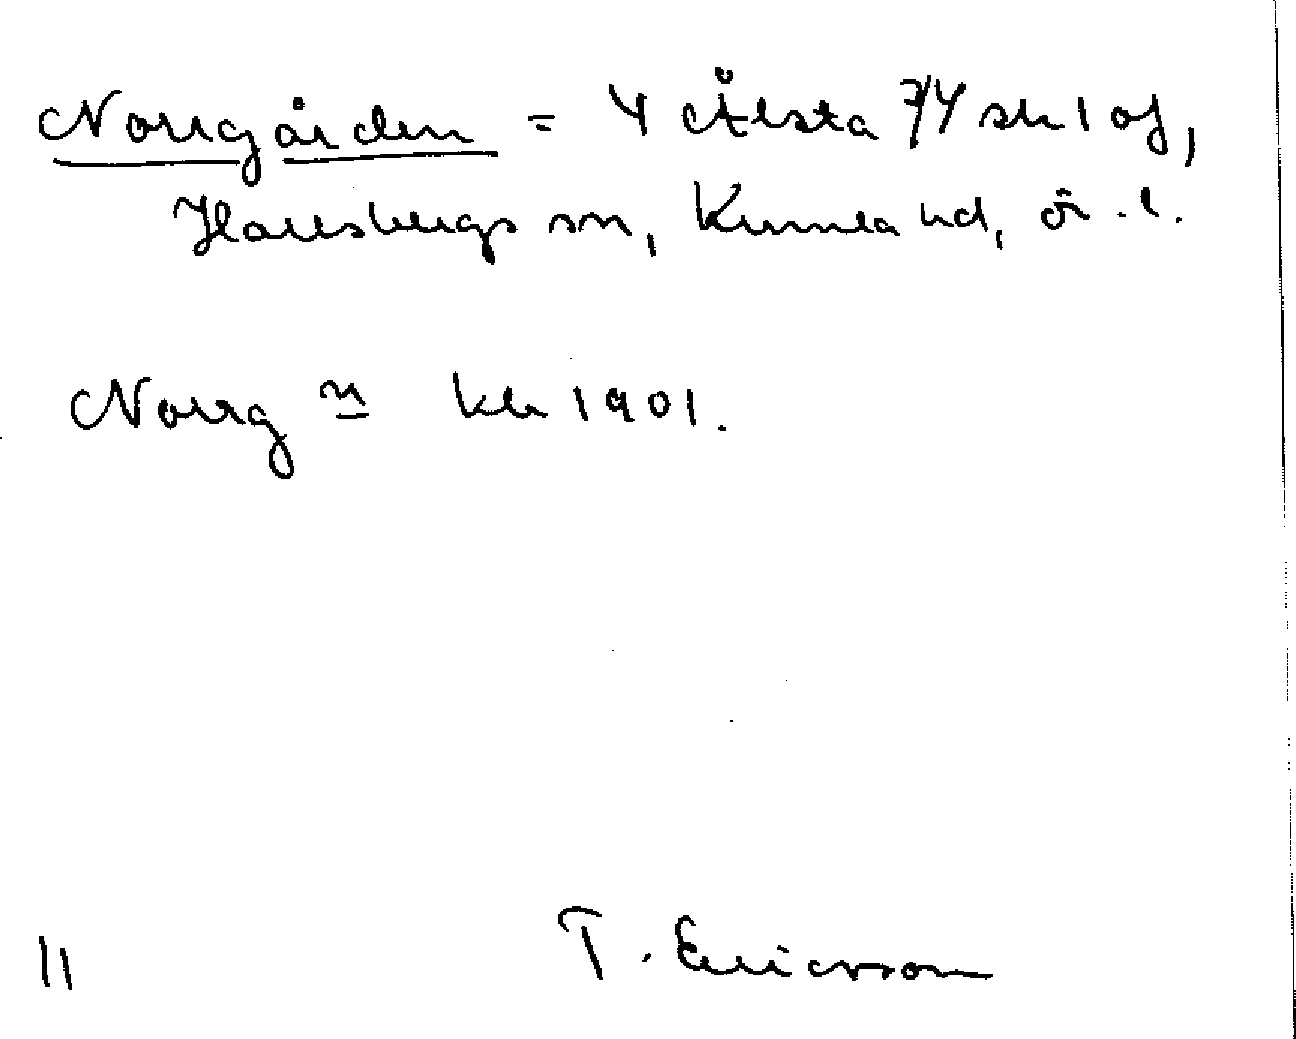 Norrgården = Y Älsta 7/4 sk 1 of,
Hallsbergs sn, Kumla hd, ör. l.
Norrg n kbr 1901.
11 T. Ericsson